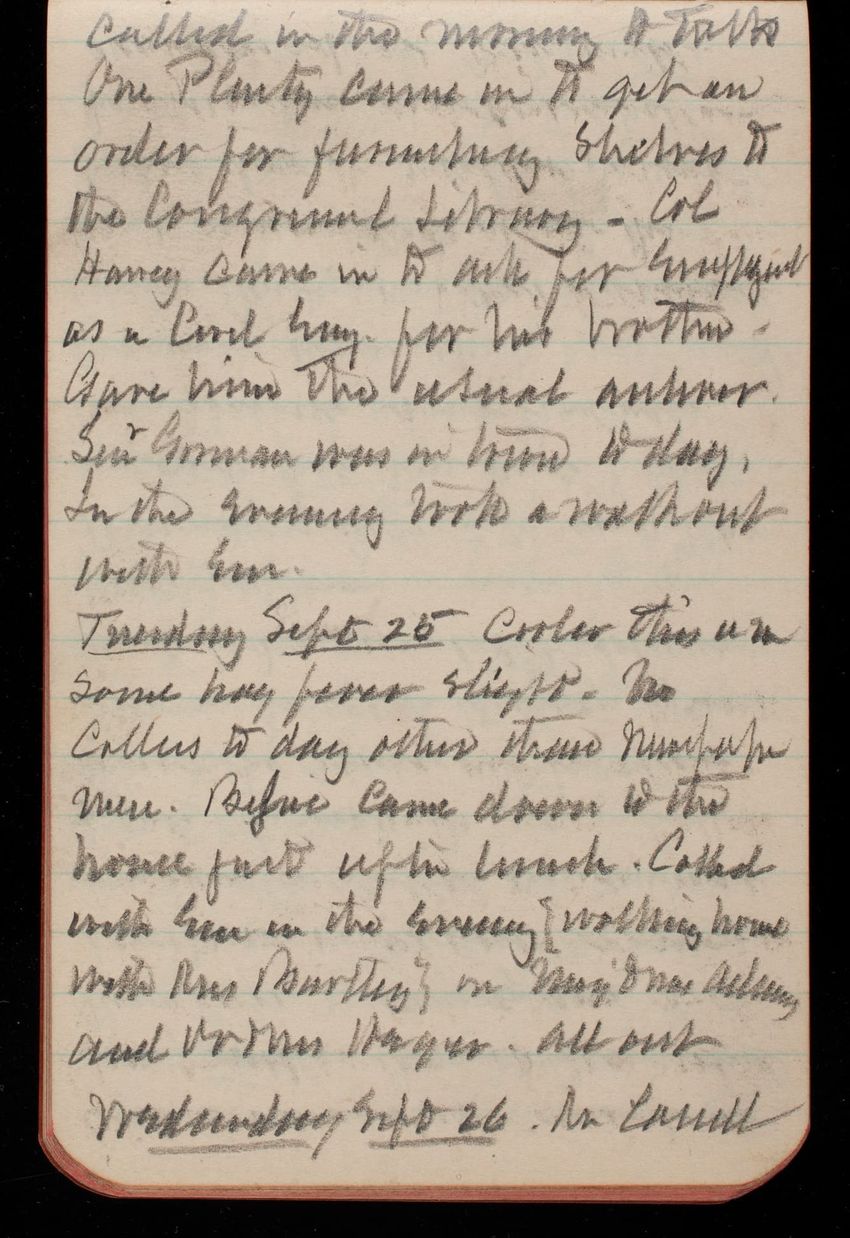 called in the morning to talk
One Plenty came in to get an
order for furnishing shelves to
the Congressional Library - Col
Harvey came in to ask for
as a Civil Eng. for his brother -
Gave him the usual answer.
Sen Gorman was in town to day,
In the evening took a walk out
with Em.
Tuesday Sept 25 Cooler this a m
some hay fever slight - No
Callers to day other than Newspaper
men. Before came down to the
house just after lunch. Called
with Em in the evening [walking home
with Mrs Bartley] on Maj & Mrs Adams
and Dr & Mrs Hager. All out
Wednesday Sept 26. Mr